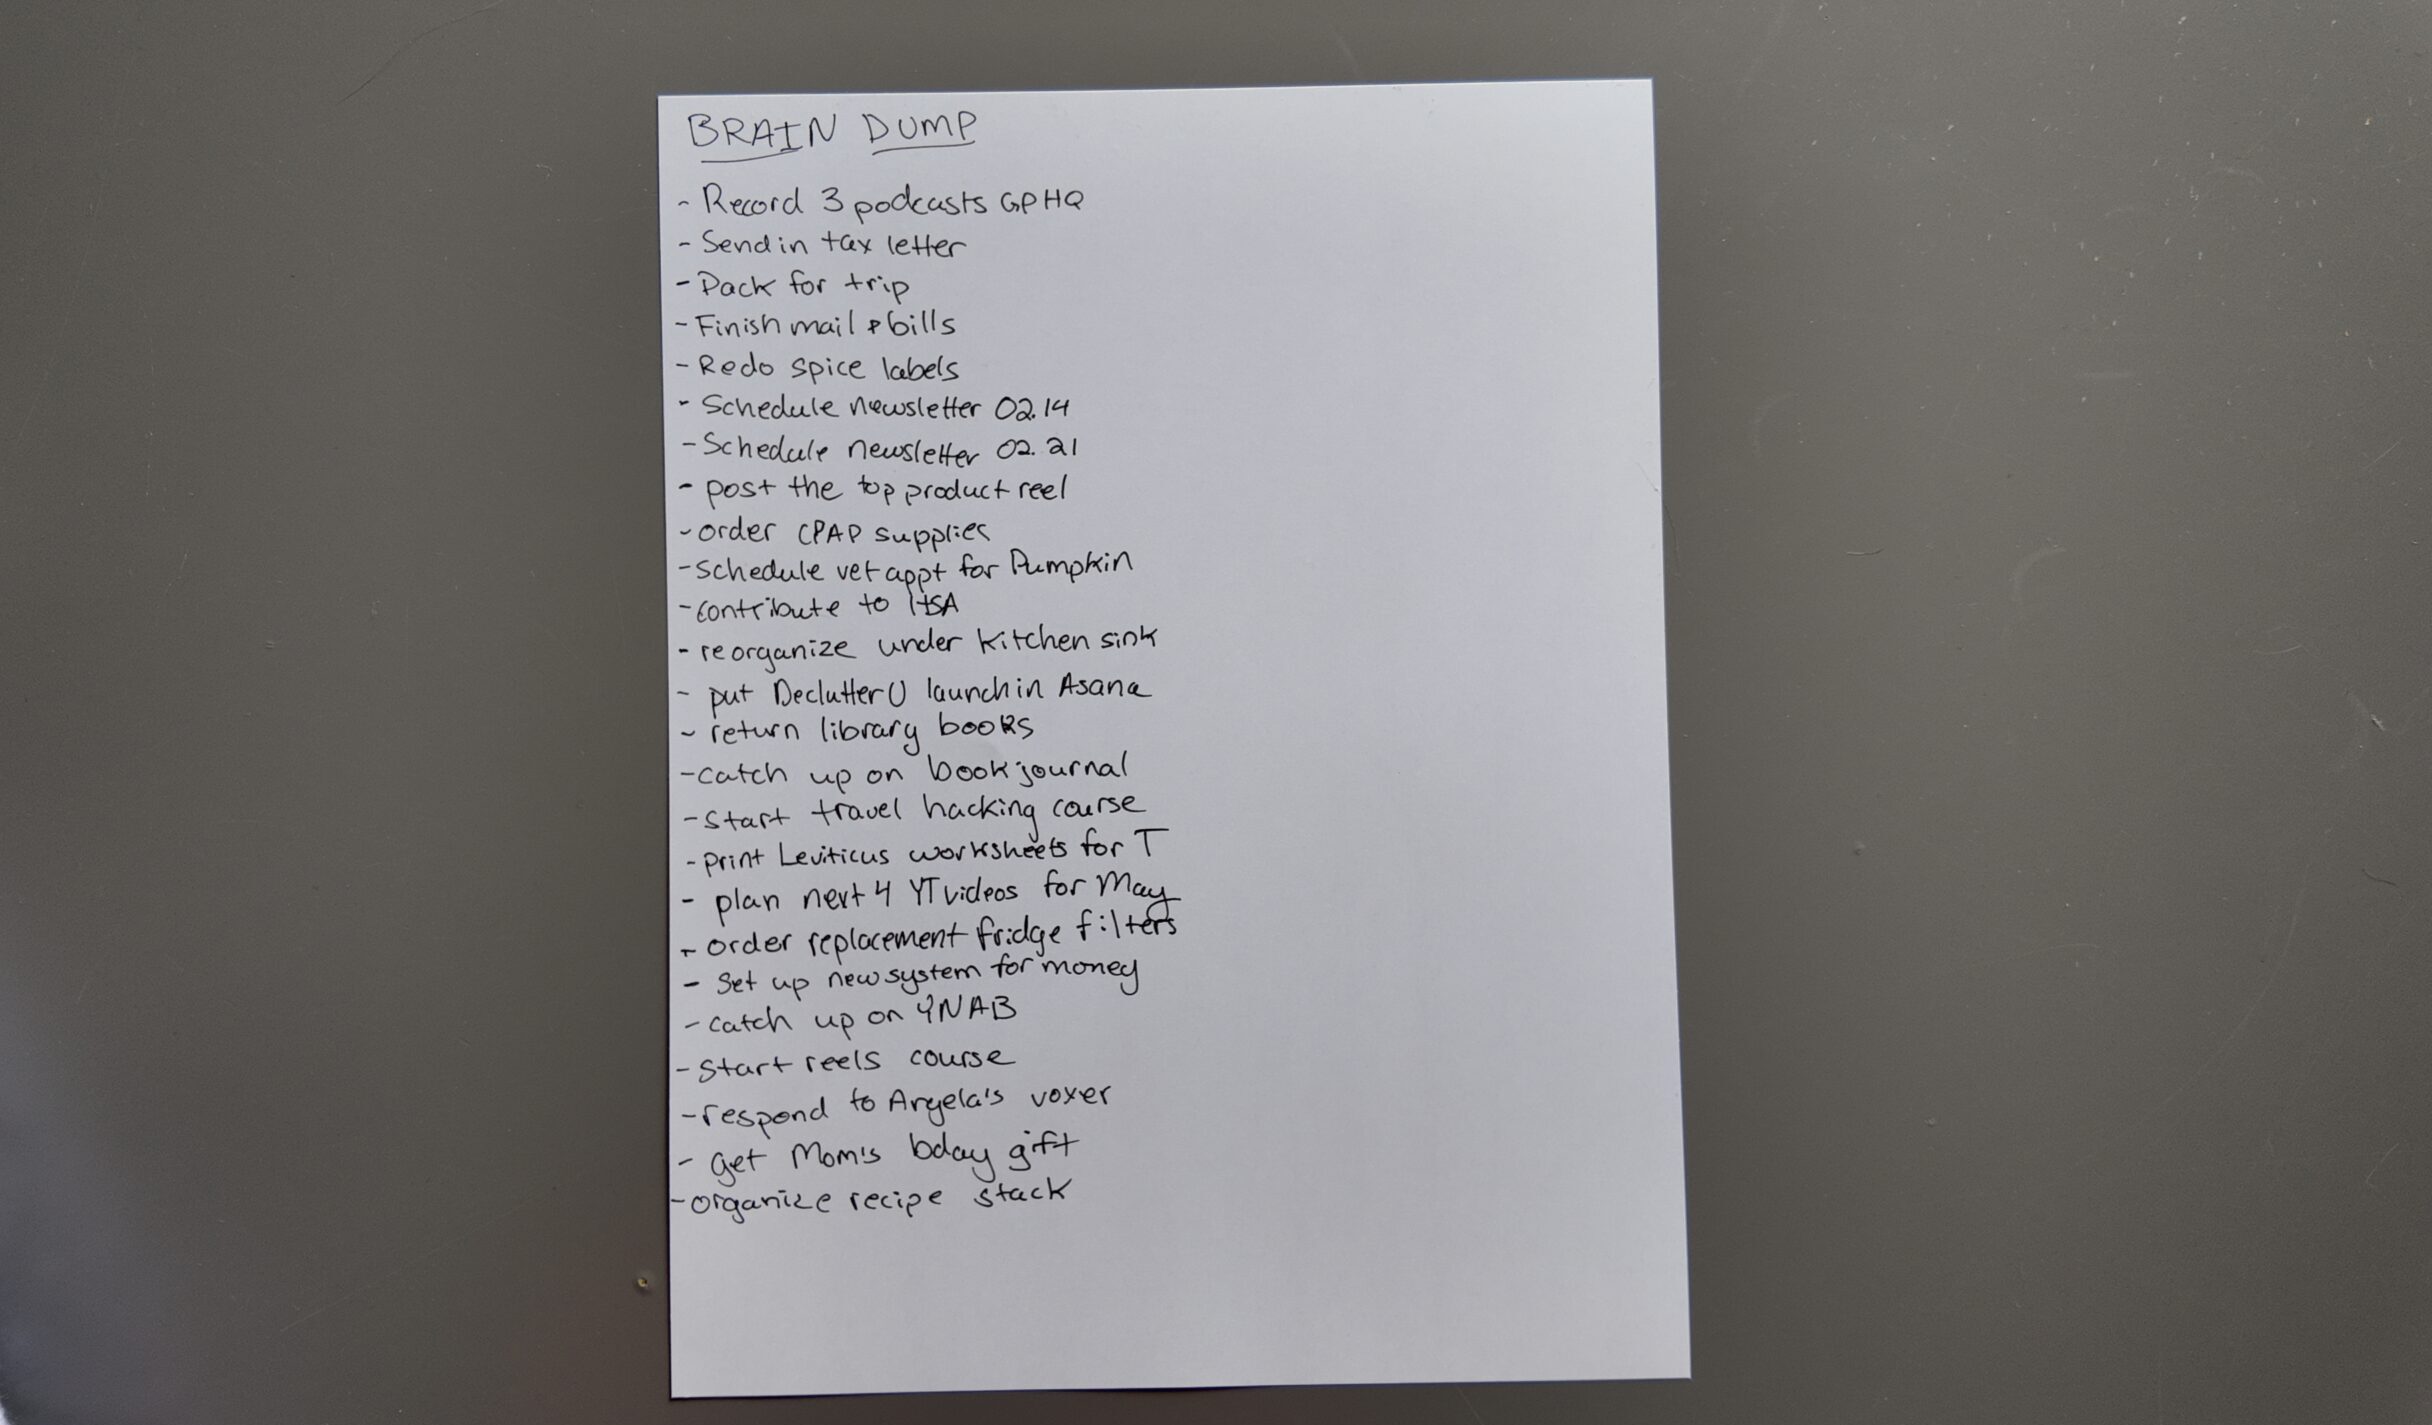 BRAIN DUMP
- Record 3 podcasts GPHQ
- Send in tax letter
- Pack for trip
- Finish mail & bills
- Redo spice labels
- Schedule newsletter 02.14
- Schedule newsletter 02.21
- post the top product reel
- order CPAP supplies
- schedule vet appt for Pumpkin
- contribute to HSA
- reorganize under kitchen sink
- put DeclutterU launch in Asana
- return library books
- catch up on book journal
- start travel hacking course
- print Leviticus worksheets for T
- plan next 4 YT videos for May
- order replacement fridge filters
- Set up new system for money
- catch up on YNAB
- start reels course
- respond to Angela's voxer
- get Mom's bday gift
- organize recipe stack